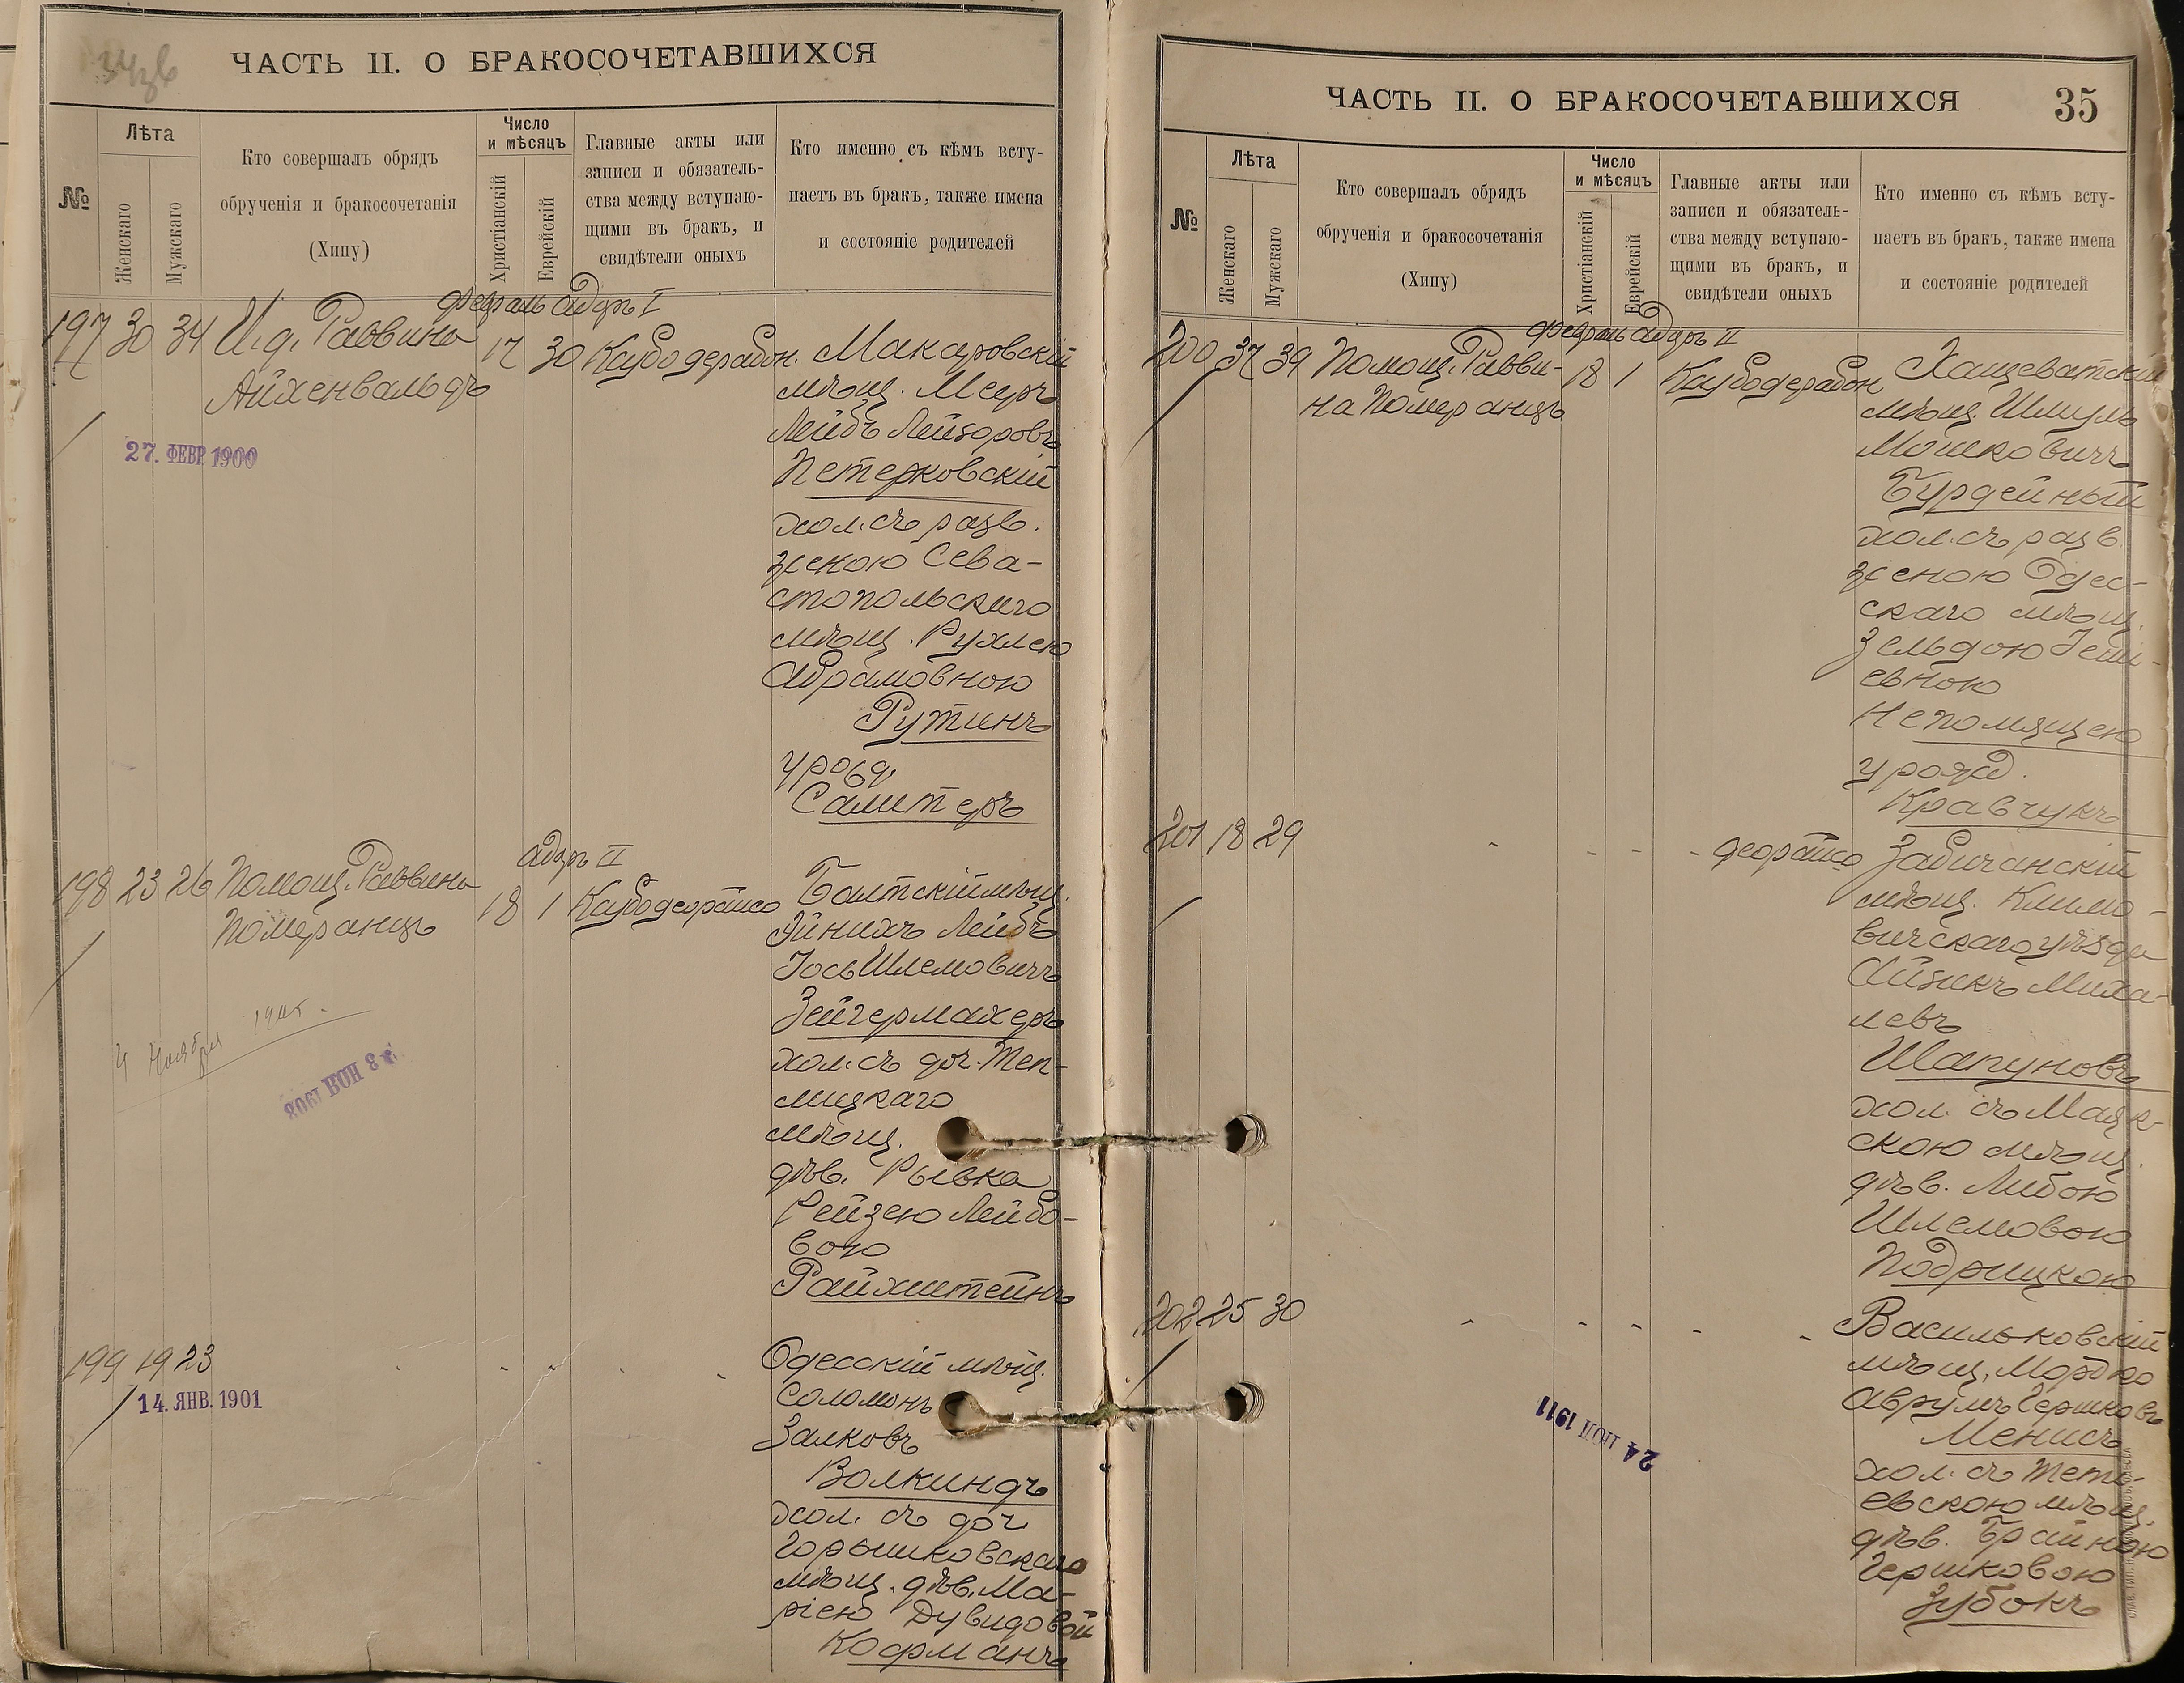 ЧАСТЬ II. О БРАКОСОЧЕТАВШИХСЯ
№
Лѣта
Женскаго
Мужскаго
Кто совершалъ обрядъ
обрученія и бракосочетанія
(Хипу)
Число
и мѣсяцъ
Христіанскій
Еврейскій
Главные акты или
записи и обязатель-
ства между вступаю-
щими въ бракъ, и
свидѣтели оныхъ
Кто именно съ кѣмъ всту-
паетъ въ бракъ, также имена
и состояніе родителей
февраль адаръ I
197 30 34 И. д. Раввина 17 30 Макаровскій
Айхенвальдъ мѣщ. Мееръ
Лейбъ Лейзоровъ
27. ФЕВР. 1900
Петерковскій
хол. съ разв.
женою Сева-
стопольскаго
мѣщ. Рухлею
Абрамовною
Рутинъ
урожд.
Самитеръ
адаръ II
198 23 26 Помощ. Раввина 18 1 Балтскій мѣщ.
Померанцъ Эйнихъ Лейбъ
Іось Шлемовичъ
Зейгермахеръ
4 Ноября
8 НОЯ 1908
хол. съ доч. Теп-
лицкаго
мѣщ.
дѣв. Рывка
Рейзею Лейбо-
вою
Райхштейнъ
199 19 23 Одесскій мѣщ.
14. ЯНВ. 1901
Соломонъ
Залковъ
Волкиндъ
хол. съ доч.
Горышковскаго
мѣщ. дѣв. Ма-
ріею Дувидовой
Кофманъ
ЧАСТЬ II. О БРАКОСОЧЕТАВШИХСЯ
35
№
Лѣта
Женскаго
Мужскаго
Кто совершалъ обрядъ
обрученія и бракосочетанія
(Хипу)
Число
и мѣсяцъ
Христіанскій
Еврейскій
Главные акты или
записи и обязатель-
ства между вступаю-
щими въ бракъ, и
свидѣтели оныхъ
Кто именно съ кѣмъ всту-
паетъ въ бракъ, также имена
и состояніе родителей
февраль адаръ II
200 37 39 Помощ. Равви- 18 1 Хащеватскій
на Померанцъ мѣщ. Шмуль
Мошковичъ
Бурдейный
хол. съ разв.
женою Одес-
скаго мѣщ.
Зельдою
евною
Непомящею
урожд.
Кравчукъ
201 18 29
мѣщ. Климо-
вичскаго уѣзда
Айзикъ Миха-
левъ
Шапуновъ
хол. съ Маяк-
скою мѣщ.
дѣв. Либою
Шлемовою
Подрицкою
202 25 30 Васильковскій
мѣщ. Мордко
Аврумъ Гершковъ
24 ІЮЛ 1911
Менисъ
хол. съ Тети-
евскою мѣщ.
дѣв. Брайною
Гершковою
Зубокъ